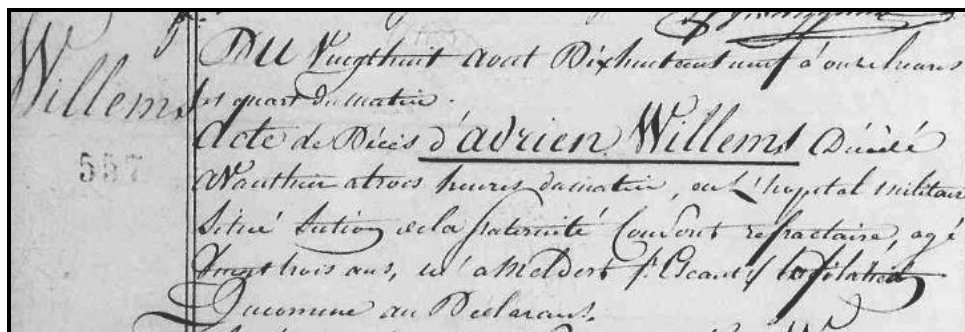 Willems
557
DU Vingthuit aout Dixhuitcent neuf à onze heures
et quart du matin.
Acte de Décès d'adrien Willems Décédé
avanthier atrois heures du matin, en l'hopital militair
Situé Section de la fraternité Conscrit refractaire, agé
Vingt trois ans, né a Meldert (: Escaut :) la filiation
Inconnue au Déclarant.